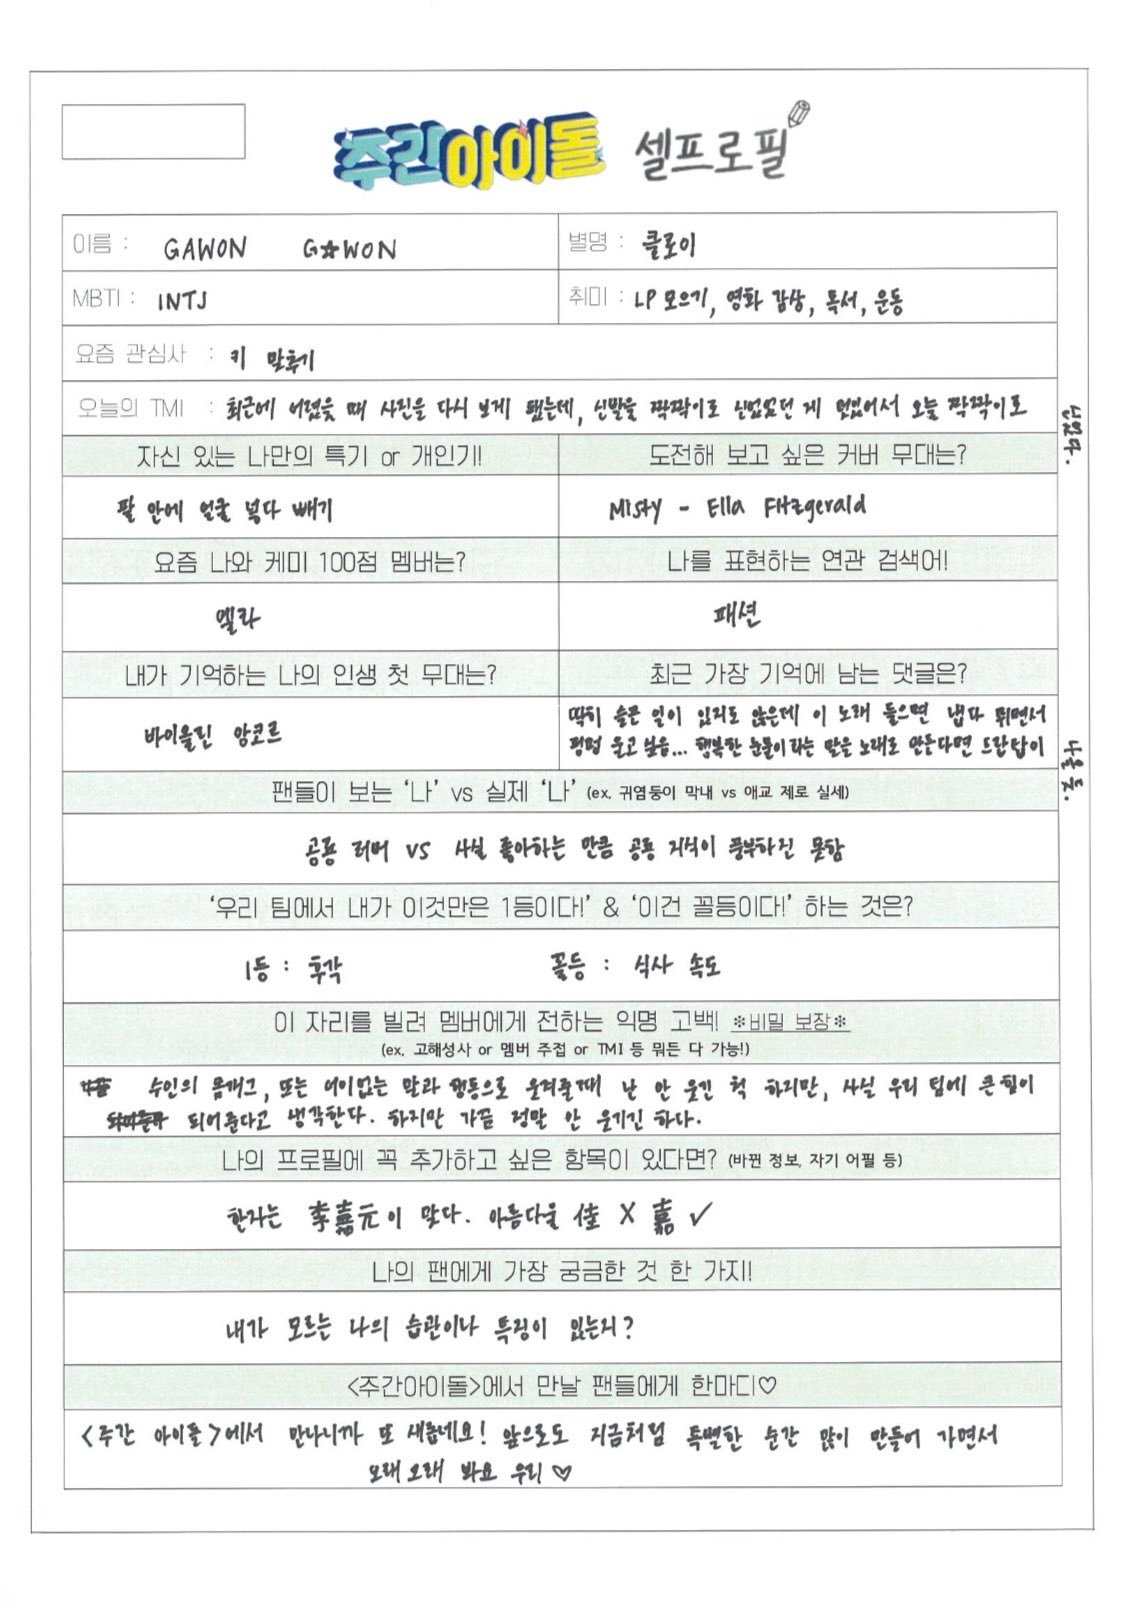 주간아이돌 셀프로필
이름 : GAWON G☆WON
별명 : 클로이
MBTI : INTJ
취미 : LP 모으기, 영화 감상, 독서, 운동
요즘 관심사 : 키 맞추기
오늘의 TMI : 최근에 어렸을 때 사진을 다시 보게 됐는데, 신발을 짝짝이로 신었었던 게 있었어서 오늘 짝짝이로
신었다.
자신 있는 나만의 특기 or 개인기!
도전해 보고 싶은 커버 무대는?
팔 안에 얼굴 넣다 빼기
Misty - Ella Fitzgerald
요즘 나와 케미 100점 멤버는?
나를 표현하는 연관 검색어!
엘라
패션
내가 기억하는 나의 인생 첫 무대는?
최근 가장 기억에 남는 댓글은?
바이올린 앙코르
딱히 슬픈 일이 있지도 않은데 이 노래 들으면 냅다 뛰면서
펑펑 울고 싶음... 행복한 눈물이라는 말을 노래로 만든다면 드라답이
나올 듯.
팬들이 보는 ‘나’ vs 실제 ‘나’ (ex. 귀염둥이 막내 vs 애교 제로 실세)
공룡 러버 vs 사실 좋아하는 만큼 공룡 지식이 풍부하진 못함
‘우리 팀에서 내가 이것만은 1등이다!’ & ‘이건 꼴등이다!’ 하는 것은?
1등 : 후각 꼴등 : 식사 속도
이 자리를 빌려 멤버에게 전하는 익명 고백! ※비밀 보장※
(ex. 고해성사 or 멤버 주접 or TMI 등 뭐든 다 가능!)
수인의 몸개그, 또는 어이없는 말과 행동으로 웃겨줄 때 난 안 웃긴 척 하지만, 사실 우리 팀에 큰 힘이
되어준다고 생각한다. 하지만 가끔 정말 안 웃기긴 하다.
나의 프로필에 꼭 추가하고 싶은 항목이 있다면? (바뀐 정보, 자기 어필 등)
한자는 李嘉元이 맞다. 아름다울 佳 X 嘉 ✓
나의 팬에게 가장 궁금한 것 한 가지!
내가 모르는 나의 습관이나 특징이 있는지?
<주간아이돌>에서 만날 팬들에게 한마디♡
<주간 아이돌>에서 만나니까 또 새롭네요! 앞으로도 지금처럼 특별한 순간 많이 만들어 가면서
오래오래 봐요 우리 ♡